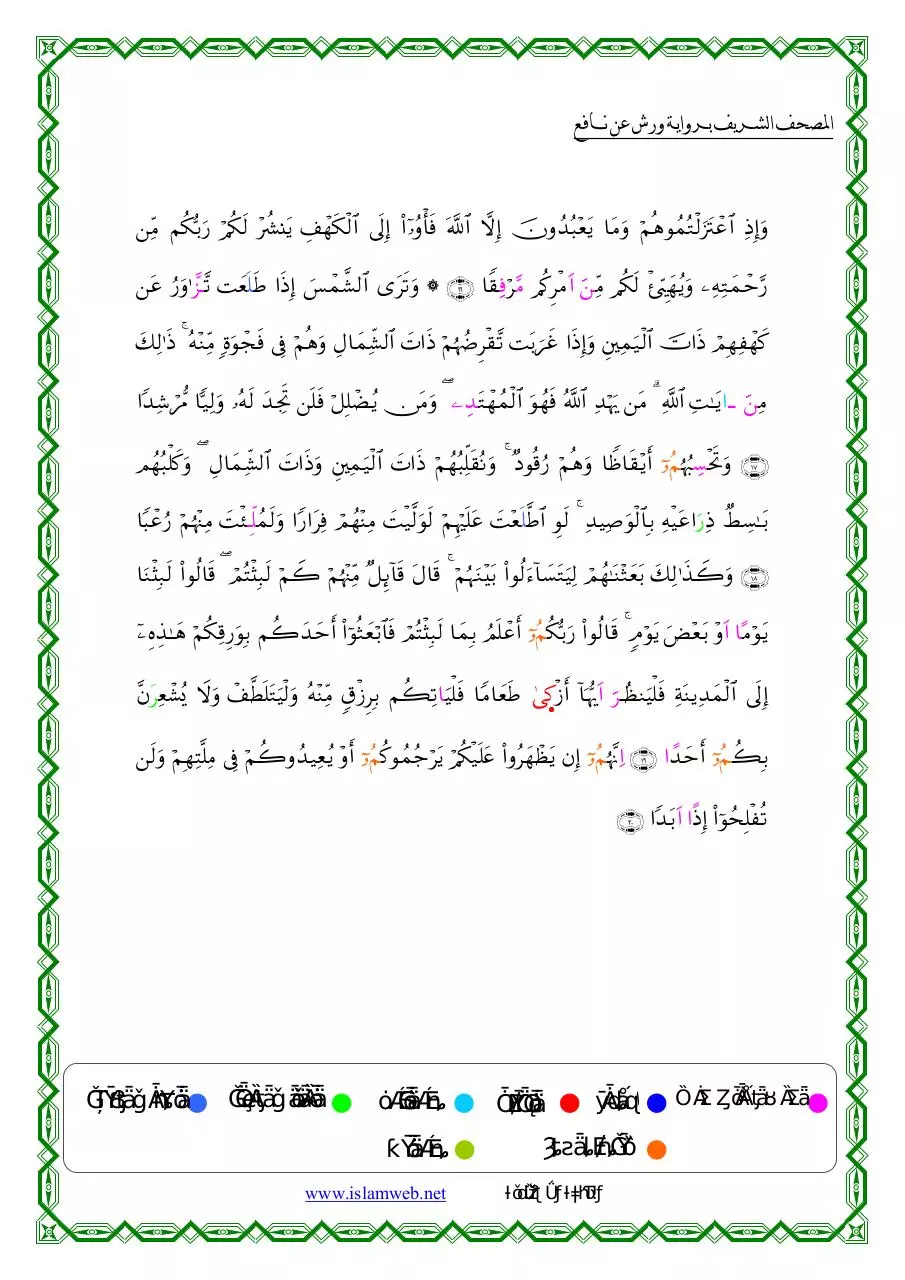 المصحف الشريف برواية ورش عن نافع
وَإِذِ ٱعْتَزَلْتُمُوهُمْ وَمَا يَعْبُدُونَ إِلَّا ٱللَّهَ فَأْوُۥٓاْ إِلَى ٱلْكَهْفِ يَنشُرْ لَكُمْ رَبُّكُم مِّن
رَّحْمَتِهِۦ وَيُهَيِّئْ لَكُم مِّنَ اَمْرِكُم مَّرْفِقًا ١٦ ۞ وَتَرَى ٱلشَّمْسَ إِذَا طَلَعَت تَّزَّٰوَرُ عَن
كَهْفِهِمْ ذَاتَ ٱلْيَمِينِ وَإِذَا غَرَبَت تَّقْرِضُهُمْ ذَاتَ ٱلشِّمَالِ وَهُمْ فِى فَجْوَةٍ مِّنْهُ ۚ ذَٰلِكَ
مِنَ ـ ايَٰتِ ٱللَّهِ ۗ مَن يَهْدِ ٱللَّهُ فَهُوَ ٱلْمُهْتَدِۦ ۖ وَمَن يُضْلِلْ فَلَن تَجِدَ لَهُۥ وَلِيًّا مُّرْشِدًا
١٧ وَتَحْسِبُهُمُۥٓ أَيْقَاظًا وَهُمْ رُقُودٌ ۚ وَنُقَلِّبُهُمْ ذَاتَ ٱلْيَمِينِ وَذَاتَ ٱلشِّمَالِ ۖ وَكَلْبُهُم
بَٰسِطٌ ذِرَاعَيْهِ بِٱلْوَصِيدِ ۚ لَوِ ٱطَّلَعْتَ عَلَيْهِمْ لَوَلَّيْتَ مِنْهُمْ فِرَارًا وَلَمُلِّئْتَ مِنْهُمْ رُعْبًا
١٨ وَكَذَٰلِكَ بَعَثْنَٰهُمْ لِيَتَسَآءَلُواْ بَيْنَهُمْ ۚ قَالَ قَآئِلٌ مِّنْهُمْ كَمْ لَبِثْتُمْ ۖ قَالُواْ لَبِثْنَا
يَوْمًا اَوْ بَعْضَ يَوْمٍ ۚ قَالُواْ رَبُّكُمُۥٓ أَعْلَمُ بِمَا لَبِثْتُمْ فَٱبْعَثُوٓاْ أَحَدَكُم بِوَرِقِكُمْ هَٰذِهِۦٓ
إِلَى ٱلْمَدِينَةِ فَلْيَنظُرَ اَيُّهَآ أَزْكَىٰ طَعَامًا فَلْيَاتِكُم بِرِزْقٍ مِّنْهُ وَلْيَتَلَطَّفْ وَلَا يُشْعِرَنَّ
بِكُمُۥٓ أَحَدًا ١٩ اِنَّهُمُۥٓ إِن يَظْهَرُواْ عَلَيْكُمْ يَرْجُمُوكُمُۥٓ أَوْ يُعِيدُوكُمْ فِى مِلَّتِهِمْ وَلَن
تُفْلِحُوٓاْ إِذًا اَبَدًا ٢٠
www.islamweb.net